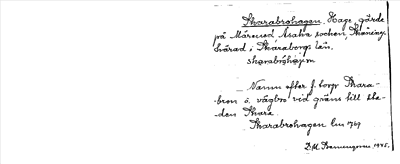 Skarabrohagen. Hage, gärde
på Mårened Asaka socken, Skånings
härad i Skaraborgs län.
skarabrohagen
Namn efter f. torp Skara-
bron o. vägbro vid gräns till sta-
den Skara
Skarabrohagen Lm 1769
1945.